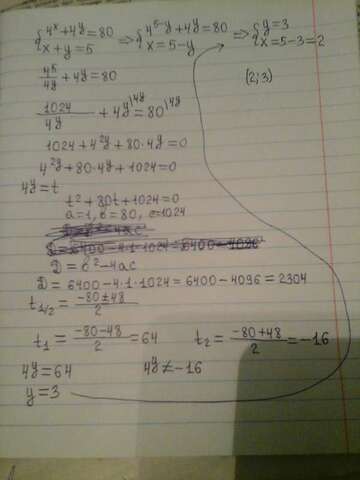 {4^x+4^y=80 ⇒ {4^{5-y}+4^y=80 ⇒ {y=3
{x+y=5 {x=5-y {x=5-3=2
4^5/4^y + 4^y=80
(2;3)
1024/4^y + 4^y\4^y = 80\4^y
1024+4^{2y}+80·4^y=0
4^{2y}+80·4^y+1024=0
4^y=t
t²+80t+1024=0
a=1, b=80, c=1024
D=b²-4ac
D=6400-4·1·1024=6400-4096
D=b²-4ac
D=6400-4·1·1024=6400-4096=2304
t_{1/2}=(-80±48)/2
t_1=(-80-48)/2=64 t_2=(-80+48)/2=-16
4^y=64 4^y≠-16
y=3